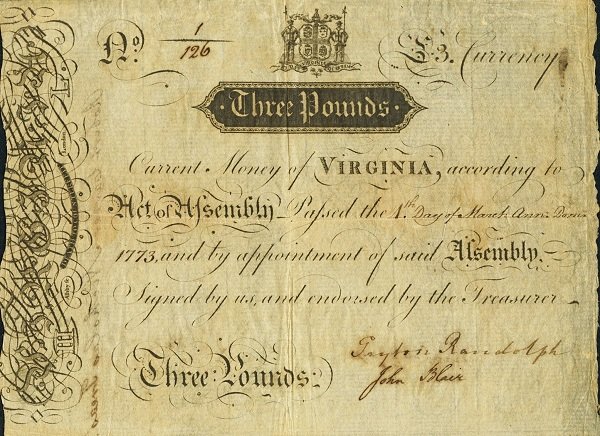 No. 1/126 £3. Currency
Three Pounds.
Current Money of VIRGINIA, according to
Act of Assembly Passed the 4th. Day of March Ann: Dom:
1773, and by appointment of said Assembly.
Signed by us, and endorsed by the Treasurer
Peyton Randolph
John Blair
Three Pounds: